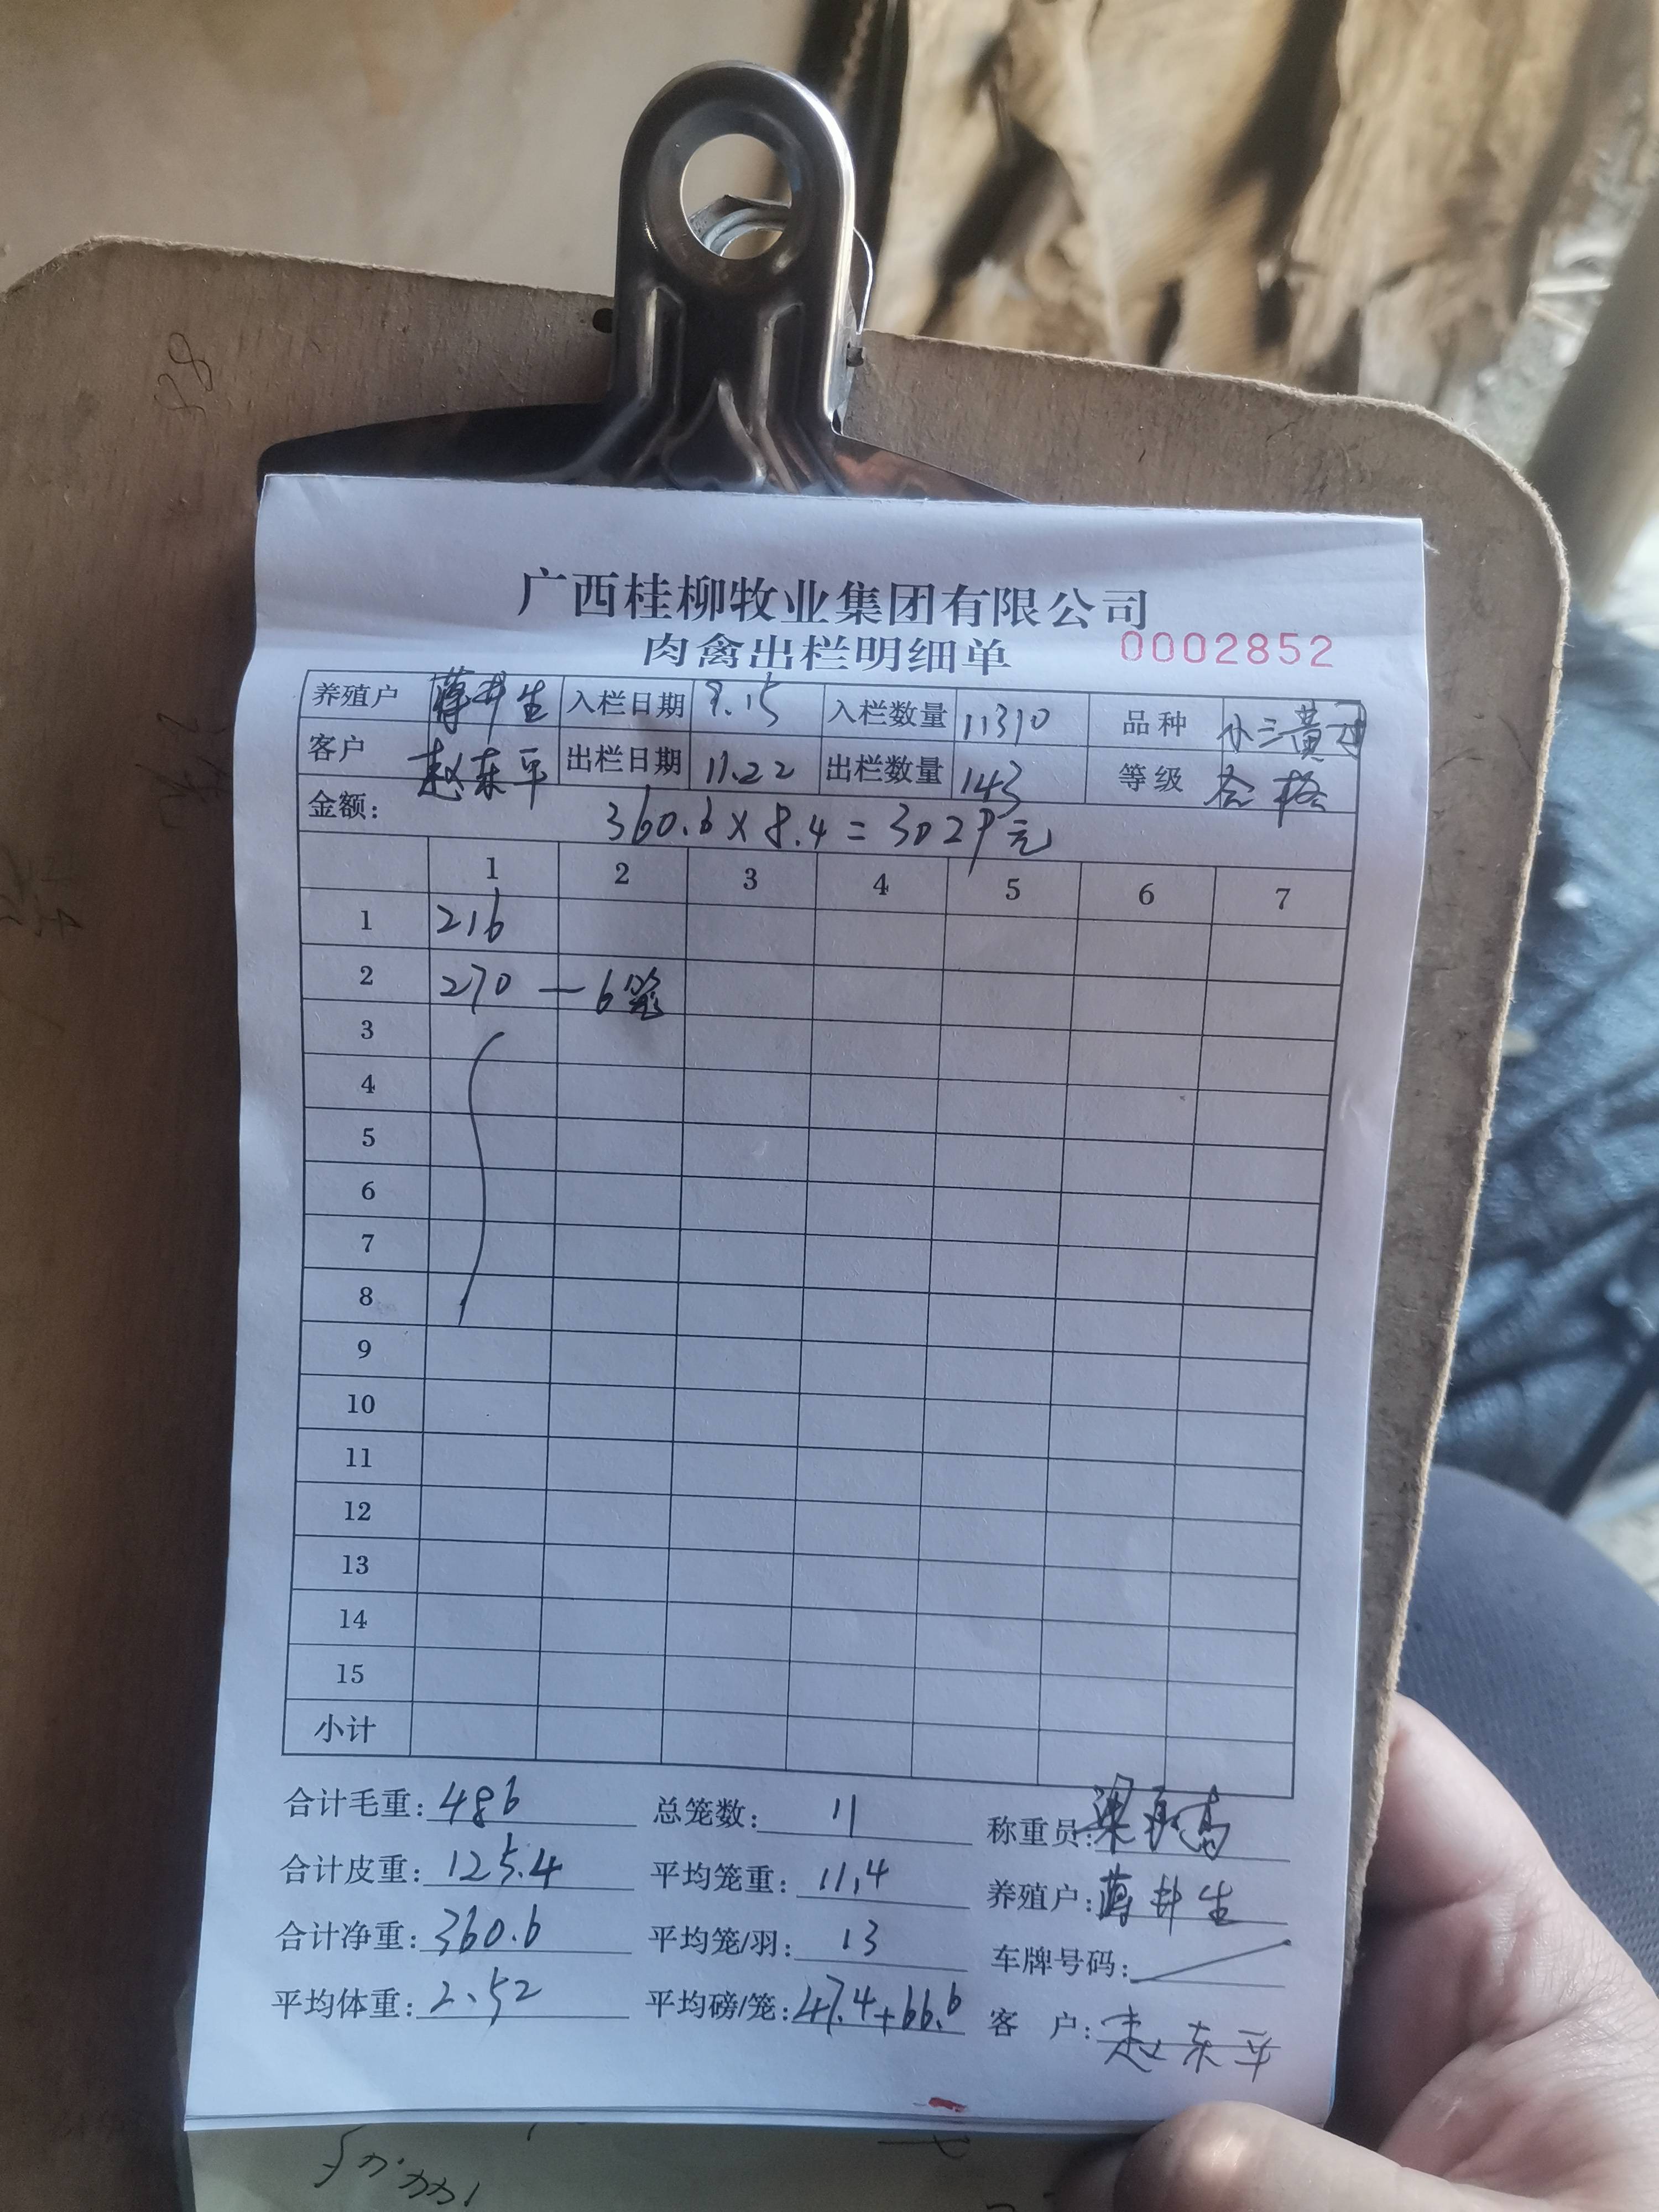 广西桂柳牧业集团有限公司
肉禽出栏明细单 0002852
养殖户 井生 入栏日期 9.15 入栏数量 11310 品种 小三黄
客户 赵东平 出栏日期 11.22 出栏数量 143 等级 合格
金额: 360.6×8.4=3029元
1 2 3 4 5 6 7
1 216
2 270 — 6笼
3
4
5
6
7
8
9
10
11
12
13
14
15
小计
合计毛重: 486 总笼数: 11 称重员: 梁
合计皮重: 125.4 平均笼重: 11.4 养殖户: 井生
合计净重: 360.6 平均笼/羽: 13 车牌号码:
平均体重: 2.52 平均磅/笼: 47.4+66.6 客户: 赵东平